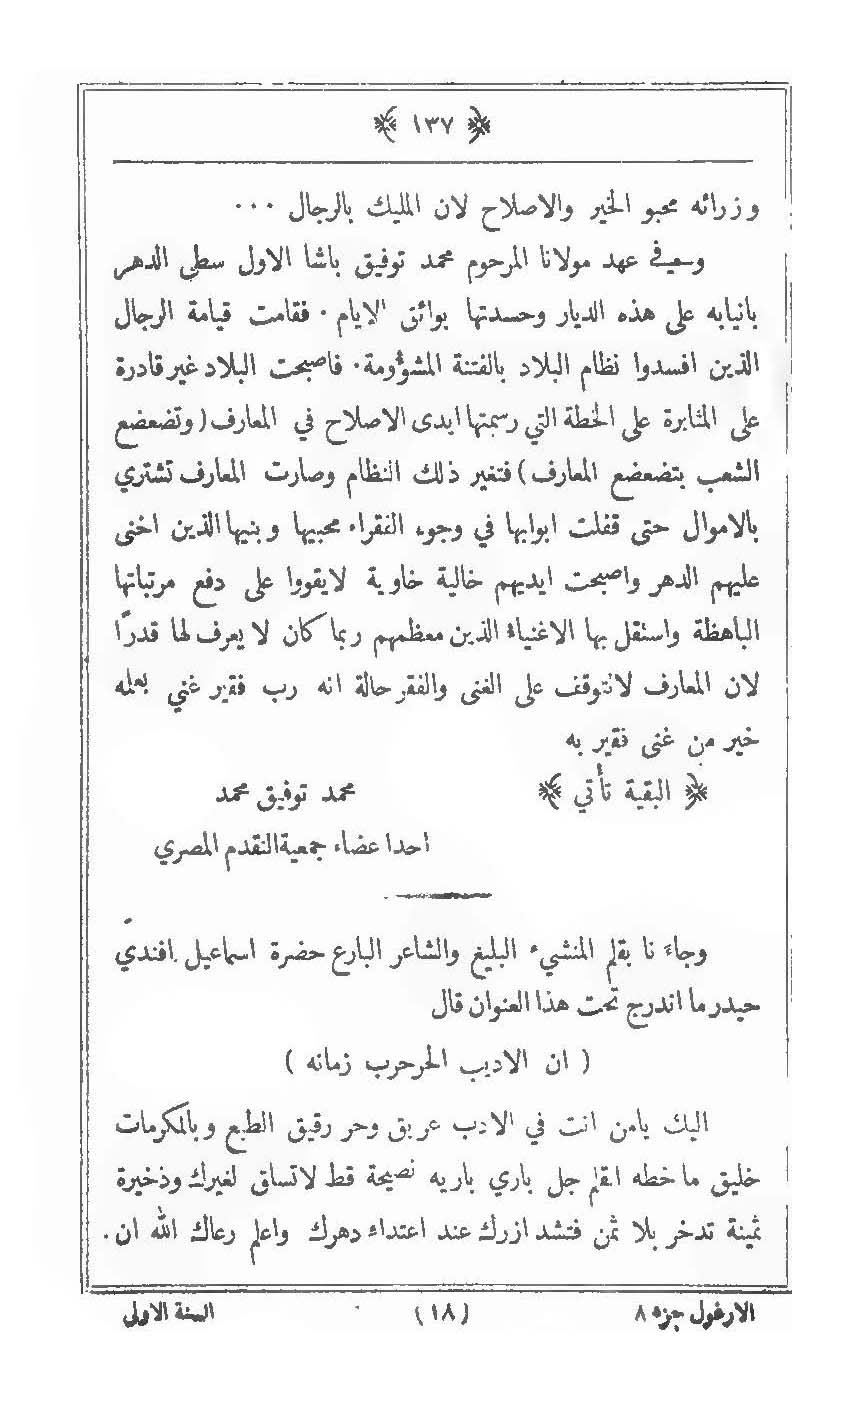 ﴿ ١٣٧ ﴾
وزرائه محبو الخير والاصلاح لان المليك بالرجال ٠٠٠
وسيفي عهد مولانا المرحوم محمد توفيق باشا الاول سطى الدهر
بانيابه على هذه الديار وحسدتها بوائق الايام ٠ فقامت قيامة الرجال
الذين افسدوا نظام البلاد بالفتنة المشؤومة ٠ فاصبحت البلاد غير قادرة
على المثابرة على الخطة التي رسمتها ايدى الاصلاح في المعارف ( وتضعضع
الشعب بتضعضع المعارف ) فتغير ذلك النظام وصارت المعارف تشتري
بالاموال حتى قفلت ابوابها في وجوه الفقراء محبيها وبنيها الذين اخنى
عليهم الدهر واصبحت ايديهم خالية خاوية لايقووا على دفع مرتباتها
الباهظة واستقل بها الاغنياء الذين معظمهم ربما كان لا يعرف لها قدرًا
لان المعارف لاتتوقف على الغنى والفقر حالة انه رب فقير غني بعلمه
خير من غنى فقير به
﴿ البقية تأتي ﴾ محمد توفيق محمد
احد اعضاء جمعية التقدم المصري
وجاءَنا بقلم المنشيء البليغ والشاعر البارع حضرة اسماعيل افندي
حيدر ما اندرج تحت هذا العنوان قال
( ان الاديب الحر حرب زمانه )
اليك يامن انت في الادب عريق وحر رقيق الطبع وبالمكرمات
خليق ما خطه القلم جل باري باريه نصيحة قط لاتساق لغيرك وذخيرة
ثمينة تدخر بلا ثمن فتشد ازرك عند اعتداء دهرك واعلم رعاك الله ان
الارغول جزء ٨ (١٨) السنة الاولى